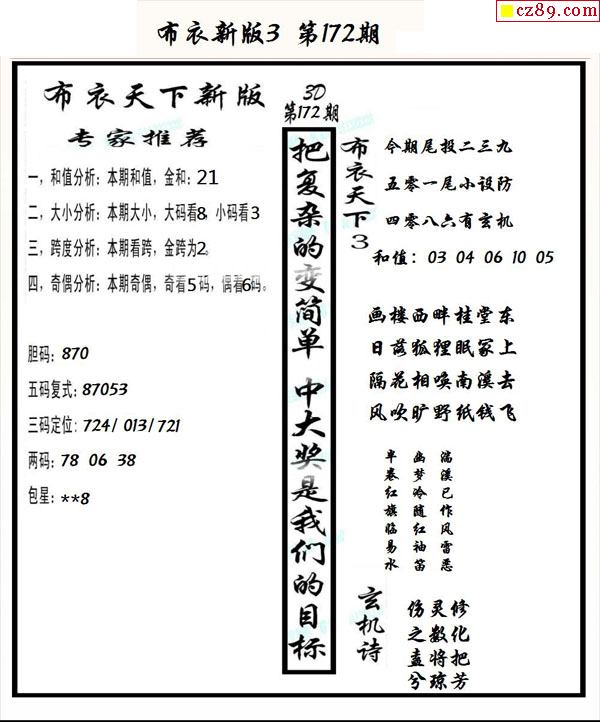 cz89.com
布衣新版3 第172期
布衣天下新版
专家推荐
一，和值分析：本期和值，金和：21
二，大小分析：本期大小，大码看8，小码看3
三，跨度分析：本期看跨，金跨为2。
四，奇偶分析：本期奇偶，奇看5码，偶看6码。
胆码：870
五码复式：87053
三码定位：724/013/721
两码：78 06 38
包星：**8
3D
第172期
把复杂的变简单 中大奖是我们的目标
布衣天下3
今期尾投二三九
五零一尾小设防
四零八六有玄机
和值：03 04 06 10 05
画楼西畔桂堂东
日落狐狸眠冢上
隔花相唤南溪去
风吹旷野纸钱飞
湍溪已作风雷恶
幽梦冷随红袖笛
半卷红旗临易水
玄机诗
修化把芳
灵数将琼
伤之盍兮